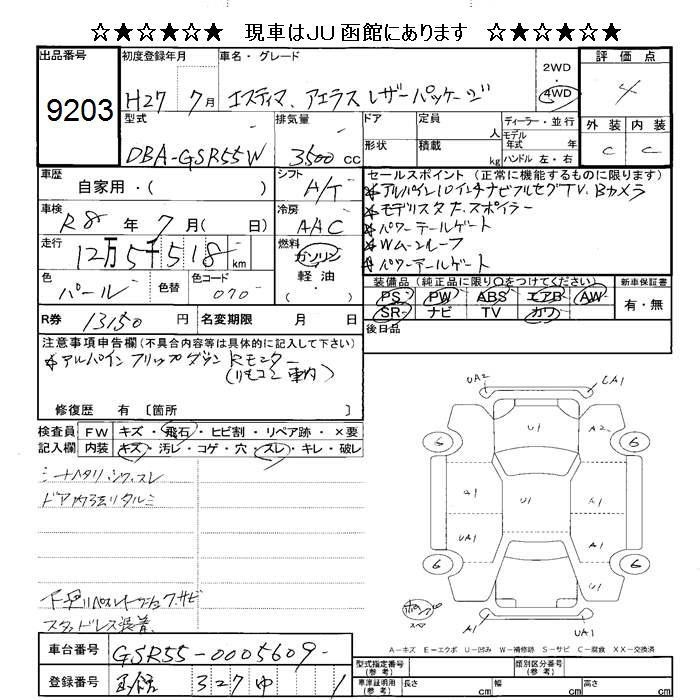 ☆★☆★☆★ 現車はJU函館にあります ☆★☆★☆★
出品番号 9203
初度登録年月 H27 7月
車名・グレード エスティマ、アエラス レザーパッケージ
2WD
4WD
評価点 4
外装 内装
C C
型式 DBA-GSR55W
排気量 3500 cc
ドア
形状
定員 人
積載 kg
ディーラー・並行
モデル年式 年式
ハンドル 左・右
車歴 自家用・( )
シフト A/T
車検 R8 年 7 月( 日)
冷房 AAC
走行 12万5千518 km
燃料 ガソリン
軽油
・( )
色 パール
色替
色コード 070
セールスポイント (正常に機能するものに限ります)
※アルパイン10インチナビフルセグTV.Bカメラ
※モデリスタ F.スポイラー
※パワーテールゲート
※Wムーンルーフ
※パワーテールゲート
装備品(純正品に限り○をつけてください)
PS PW ABS エアB AW
SR ナビ TV カワ
新車保証書
有・無
R券 13150 円
名変期限 月 日
後日品
注意事項申告欄(不具合内容等は具体的に記入して下さい)
※アルパイン フリップダウン Rモニター
(リモコン車内)
修復歴 有〔箇所 〕
検査員記入欄
FW キズ・飛石・ヒビ割・リペア跡・×要
内装 キズ・汚レ・コゲ・穴・スレ・キレ・破レ
シートヘタリ.シワ.スレ
ドア内張リタルミ
スタッドレス装着
UA2 CA1
U1 A2
6 6
A1 U1 A1
UA1 A1
6 6
U1
A1 UA1
スペア
A-キズ E-エクボ U-凹み W-補修跡 S-サビ C-腐食 XX-交換済
車台番号 GSR55-0005609
登録番号 函館 327 ゆ 1
型式指定番号(参考)
類別区分番号(参考)
車庫証明用(参考)
長さ cm
幅 cm
高さ cm